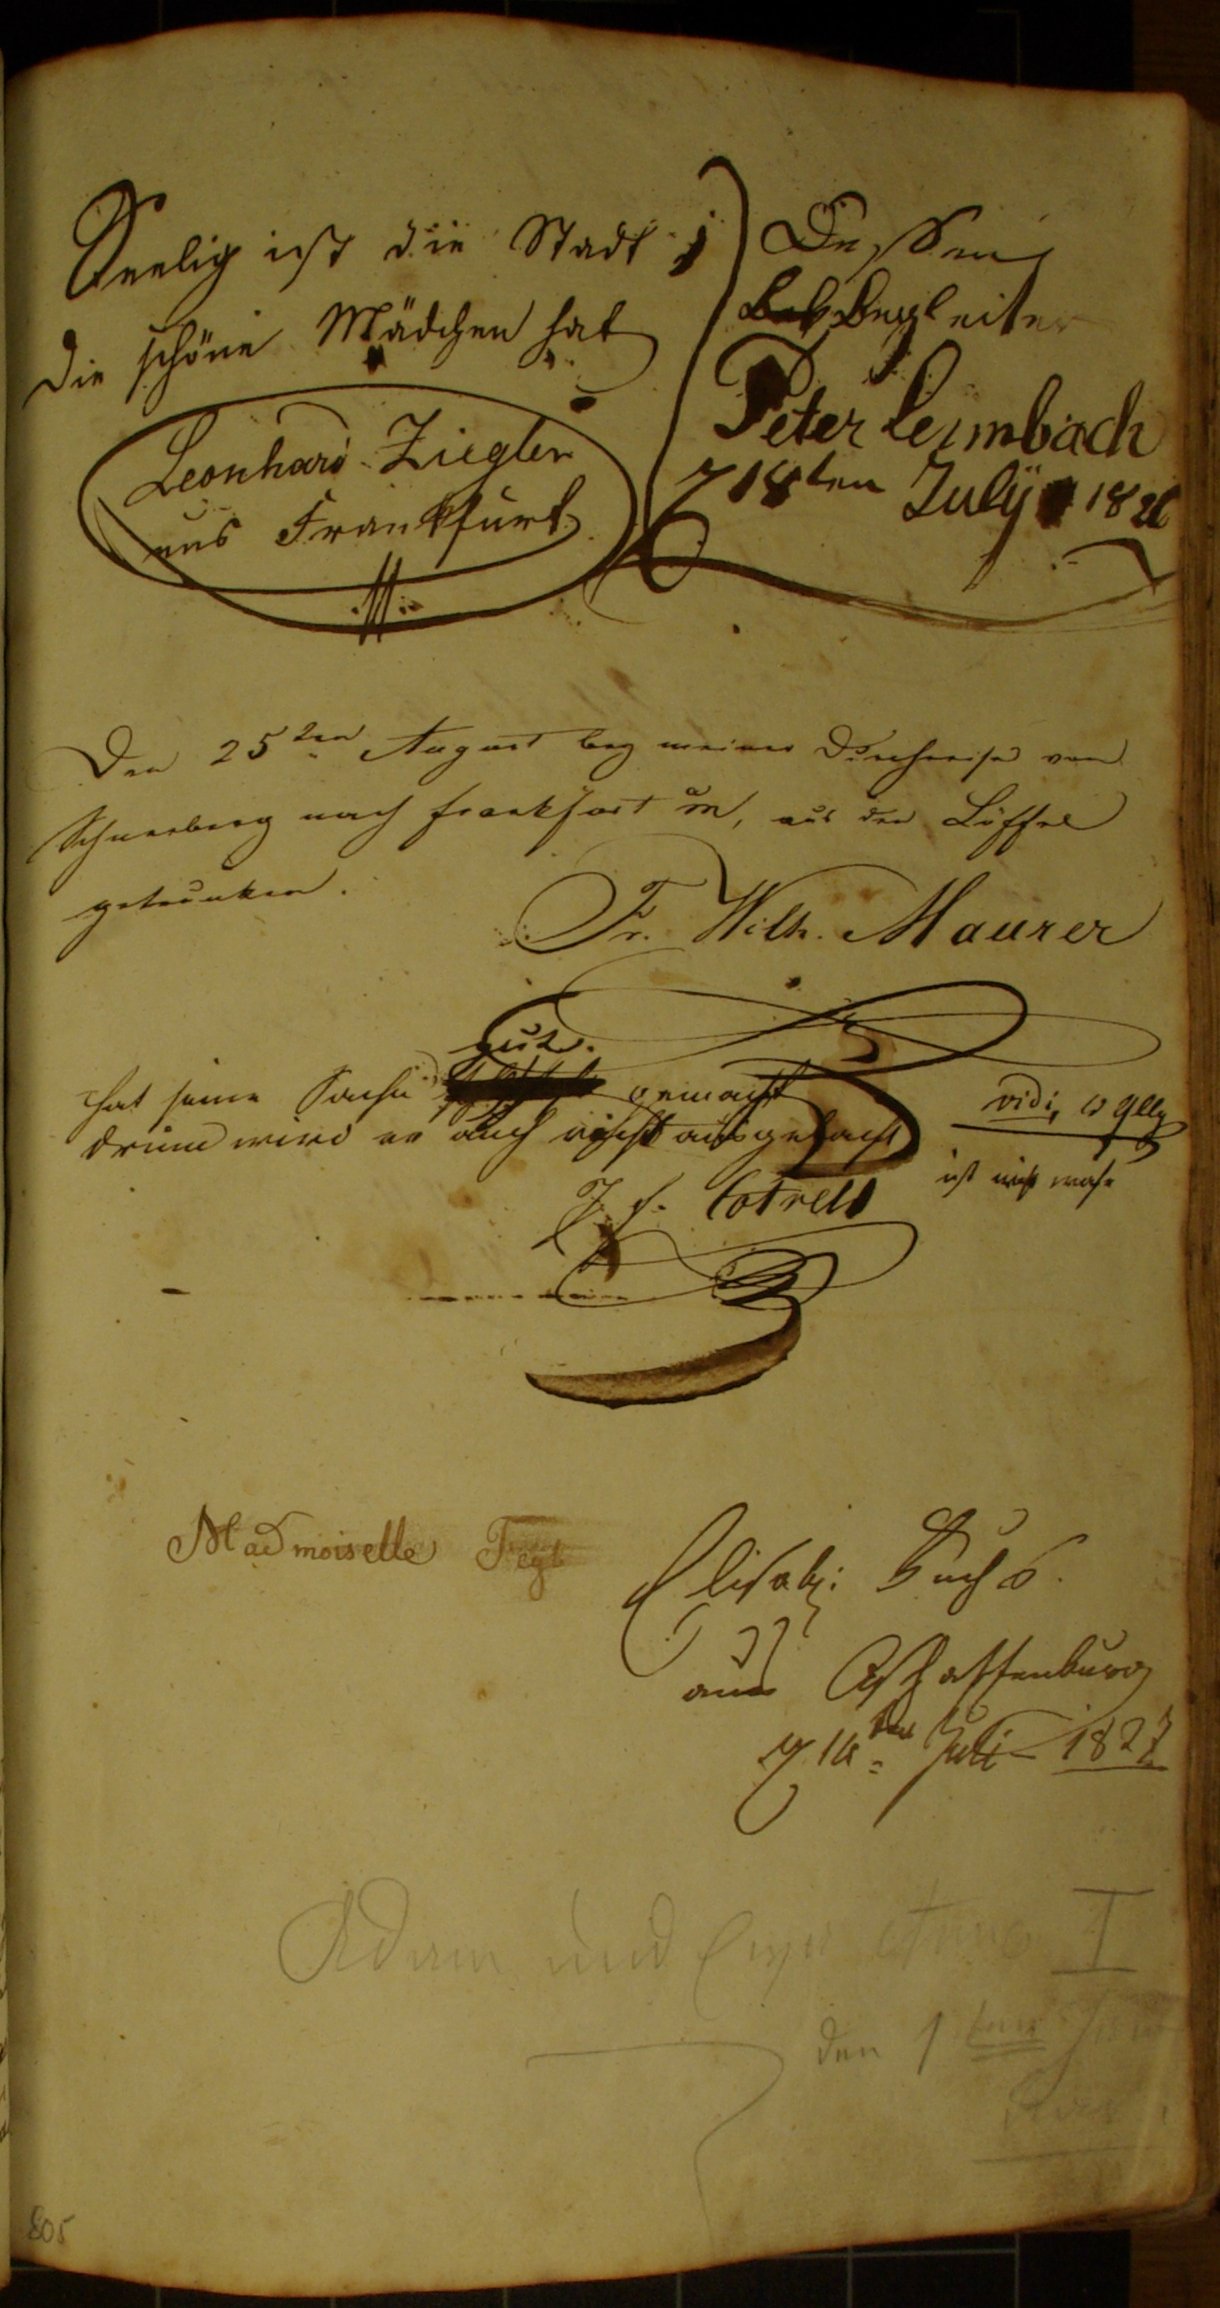 Seelig ist die Stadt
die schöne Mädchen hat
Leonhard Ziegler
aus Frankfurt
Dessen
Begleiter
Peter Leimbach
18ten July 1826
Den 25ten August bey meiner Durchreise von
Schneeberg nach Frankfurt a/m, aus den Löffel
getrunken.
Fr. Wilh. Maurer
gut.
hat seine Sache gemacht
drum wird er auch nicht ausgelacht
vidi,
ist nicht wahr
J. f. Cotrell
Madmoiselle
Elisab: Fuchs.
aus Aschaffenburg
16ten Juli 1827
Adam und Eva Anno I
den 1ten
805